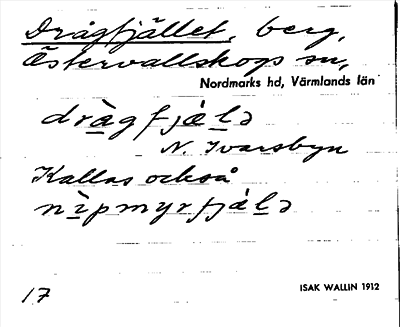 Drågfjället, berg,
Östervallskogs sn,
Nordmarks hd, Värmlands län
dràgfjæ̀lə
N. Ivarsbyn
Kallas också
nìpmyrfjæ̀lə
17
ISAK WALLIN 1912